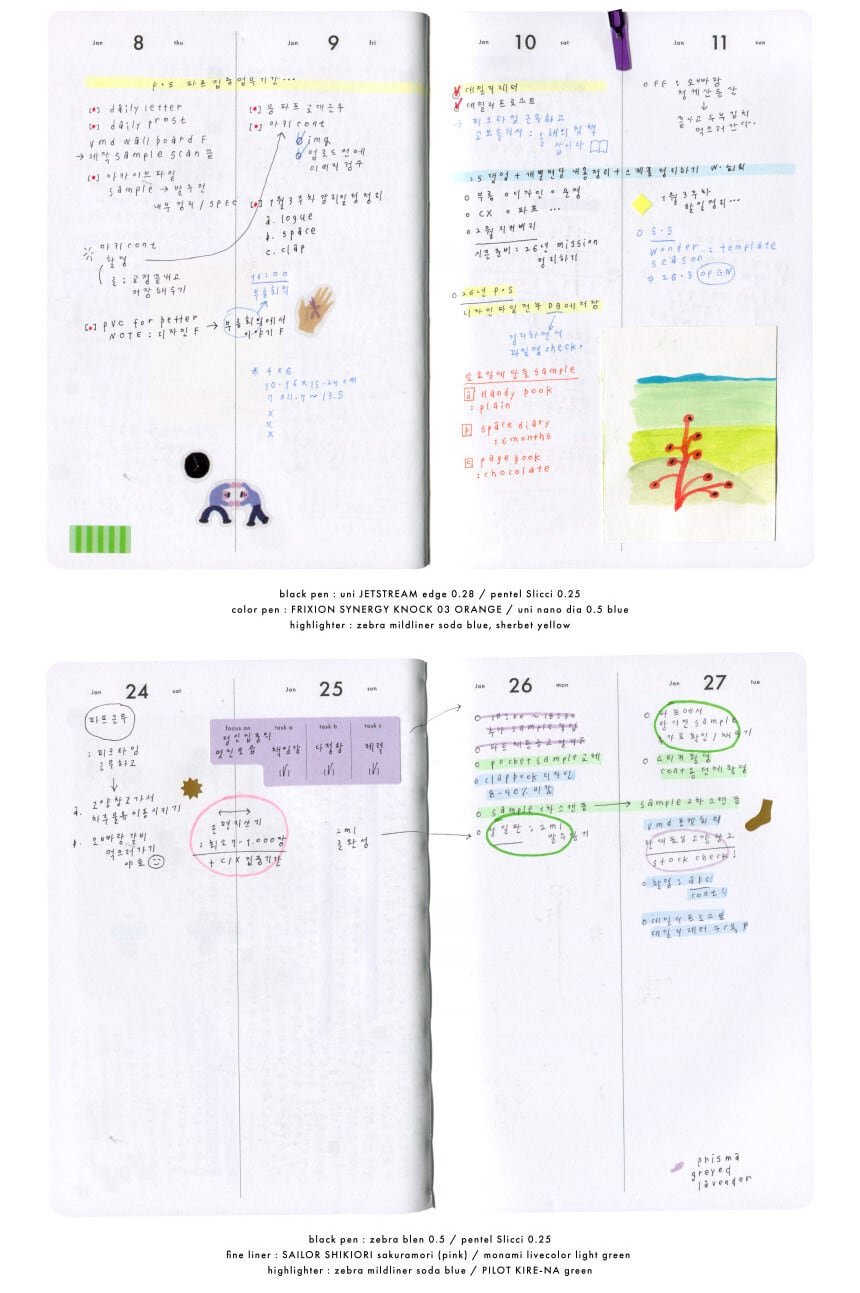 Jan 8 thu
Jan 9 fri
Jan 10 sat
Jan 11 sun
P.S 파르 집중업무기간...
[•] daily letter
[•] daily prost
vmd wall board F
→ 제작 sample scan 끝
[•] 아카이브파일
sample → 발주전
내부정리 / SPEC
아키 cont
촬영
글 : 교정끝내고
저장해두기
[•] PVC for better
NOTE : 디자인 F → 부름회의에서
이야기 F
[•] 아키 cont
img
업로드전에
이미지 검수
[•] 1월 3주차 관리일정정리
a. logue
b. space
c. clap
16:00
부름회의
* 4 x 6
10.16 x 15.24 cm
x
x
x
데일리레터
데일리프로스트
→ 피크타임 근무하고
교보들러서 : 올해의 첫 책
삽니다
25 맵업 + 개별면담 내용정리 + 스케줄 정리하기 W. 회희
o 부름 o 디자인 o 운영
o CX o 파르 ...
o 2월 리커버리
시즌준비 : 26년 mission
정리하기
o 26년 P.S
디자인파일전부 DB에 저장
정리하면서
파일명 check.
토요일에 만들 sample
a Handy book
: plain
b spare diary
: 6 months
c page book
: chocolate
OFF : 오빠랑
청계산등산
↓
끝나고 두부김치
먹으러 간다..
1월 3주차
할일정리...
o S.S
wonder : template
season
⇒ 26.3 OPEN
black pen : uni JETSTREAM edge 0.28 / pentel Slicci 0.25
color pen : FRIXION SYNERGY KNOCK 03 ORANGE / uni nano dia 0.5 blue
highlighter : zebra mildliner soda blue, sherbet yellow
Jan 24 sat
Jan 25 sun
Jan 26 mon
Jan 27 tue
파르근무
: 피크타임
근무하고
↓
a. 고양창고가서
차주물류 이동시키기
b. 오빠랑 갈비
먹으러가기
야호
focus on
task a
task b
task c
정신집중의
멋진모습
책임감
다정함
체력
손편지쓰기
: 최소 7-1,000장
+ C/X 집중기간
2ml
글완성
o pocket sample 교체
o clapbook 디자인
80-90% 마감
o sample 2차 스캔 끝
할일란 : 2ml
o 파르에서
안가진 sample
추가로 확인 / 채우기
o 스티커 촬영
cont용 전체 촬영
sample 2차 스캔 끝
vmd 목캔회의
stock check!
o 촬영 : abc
cont!
o 데일리프로스트
데일리레터 수/목 F
prisma
greyed
lavender
black pen : zebra blen 0.5 / pentel Slicci 0.25
fine liner : SAILOR SHIKIORI sakuramori (pink) / monami livecolor light green
highlighter : zebra mildliner soda blue / PILOT KIRE-NA green